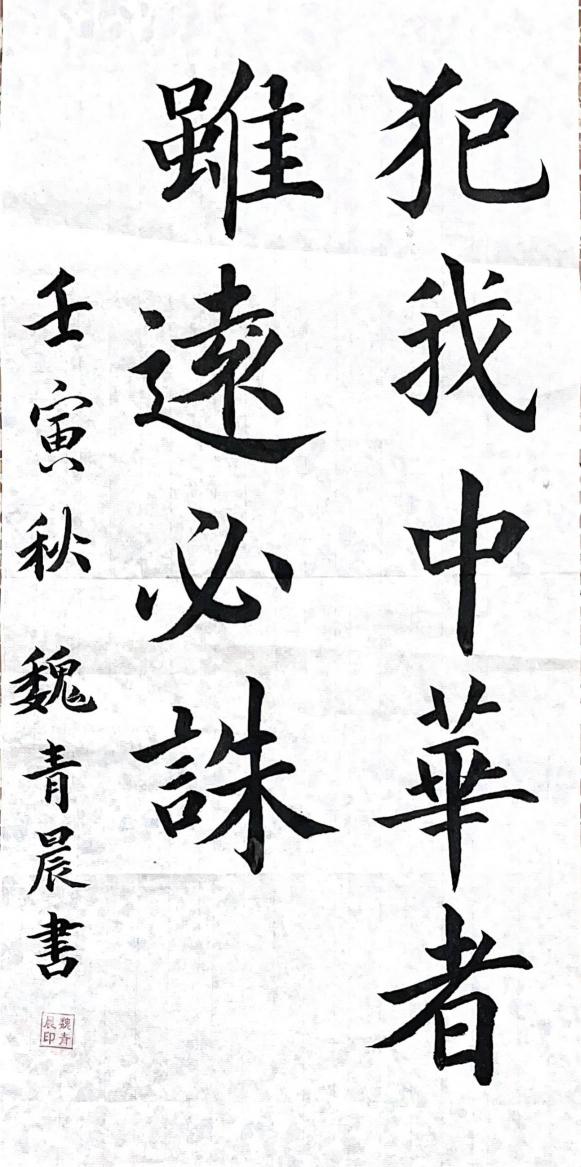 犯我中華者
雖遠必誅
壬寅秋 魏青晨书
魏青
晨印